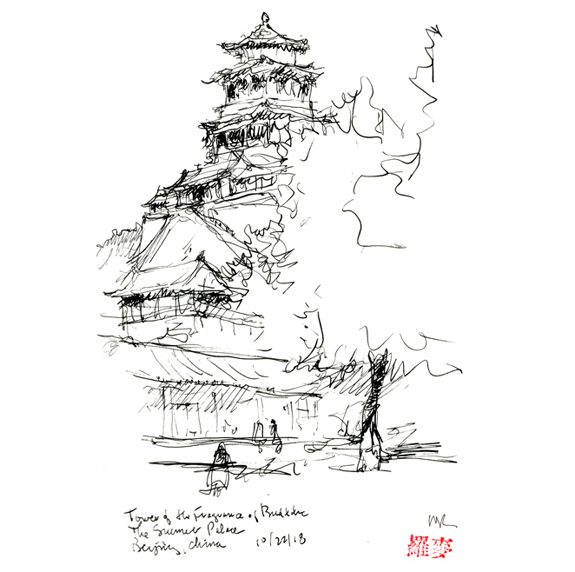 Tower of the Fragrance of Buddha
The Summer Palace
Beijing, China 10/22/13
MR
羅麥